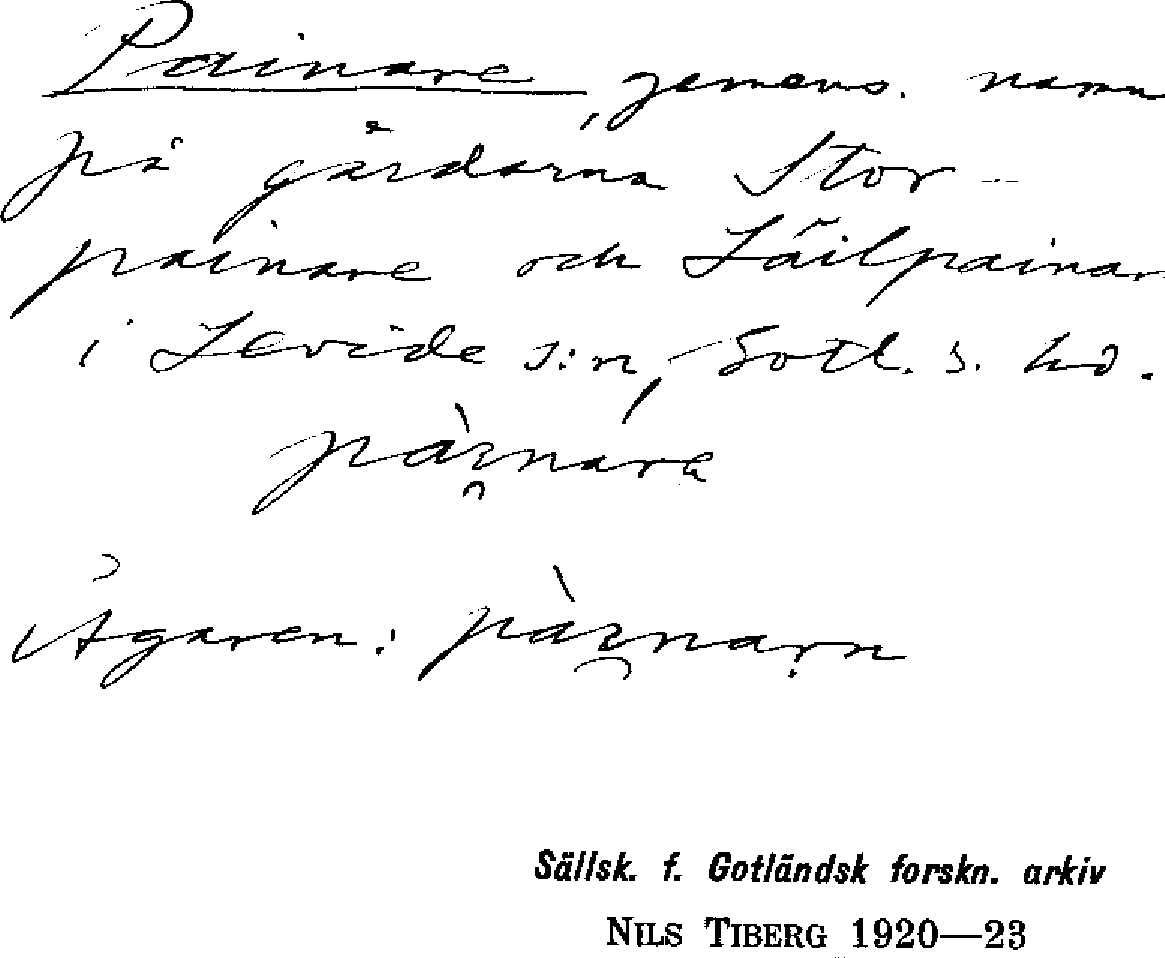 Painare, gemens. namn
på gårdarna Stor-
painare och Läilpainar
i Levide s:n, Gotl. s. hd.
pàɪ̯nara
Ägaren: pàɪ̯narn
Sällsk. f. Gotländsk forskn. arkiv
NILS TIBERG 1920—23